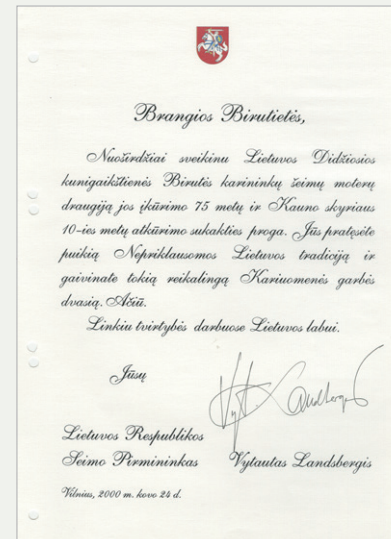 Brangios Birutietės,
Nuoširdžiai sveikinu Lietuvos Didžiosios
kunigaikštienės Birutės karininkų šeimų moterų
draugiją jos įkūrimo 75 metų ir Kauno skyriaus
10-ies metų atkūrimo sukakties proga. Jūs pratęsėte
puikią Nepriklausomos Lietuvos tradiciją ir
gaivinate tokią reikalingą Kariuomenės garbės
dvasią. Ačiū.
Linkiu tvirtybės darbuose Lietuvos labui.
Jūsų
Vyt Landsbergis
Lietuvos Respublikos
Seimo Pirmininkas Vytautas Landsbergis
Vilnius, 2000 m. kovo 24 d.